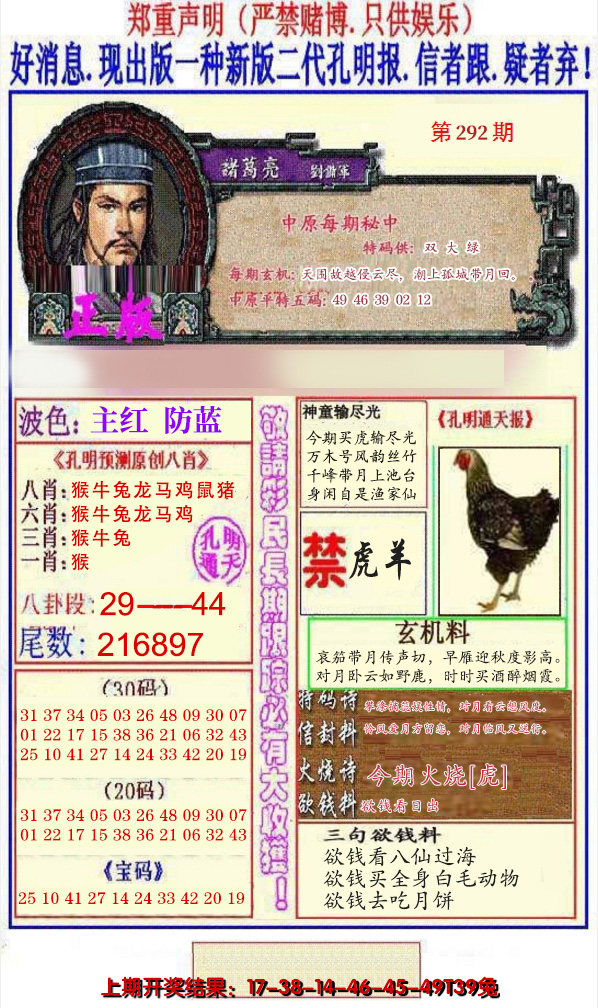 郑重声明（严禁赌博.只供娱乐）
好消息.现出版一种新版二代孔明报.信者跟.疑者弃!
第292期
諸葛亮
劉備軍
中原每期秘中
特码供: 双 大 绿
每期玄机: 天国故越侵云尽，潮上孤城带月回。
中原平特五码: 49 46 39 02 12
正版
波色: 主红 防蓝
《孔明预测原创八肖》
八肖: 猴牛兔龙马鸡鼠猪
六肖: 猴牛兔龙马鸡
三肖: 猴牛兔
一肖: 猴
孔明
通天
八卦段: 29——44
尾数: 216897
（30码）
31 37 34 05 03 26 48 09 30 07
01 22 17 15 38 36 21 06 32 43
25 10 41 27 14 24 33 42 20 19
（20码）
31 37 34 05 03 26 48 09 30 07
01 22 17 15 38 36 21 06 32 43
《宝码》
25 10 41 27 14 24 33 42 20 19
敬請彩民長期跟踪必有大收獲！
神童输尽光
今期买虎输尽光
万木号风韵丝竹
千峰带月上池台
身闲自是渔家仙
《孔明通天报》
禁 虎羊
玄机料
哀笳带月传声切，早雁迎秋度影高。
对月卧云如野鹿，时时买酒醉烟霞。
特码诗
信封料 怜风爱月方留恋，对月临风又逆行。
火烧诗 今期火烧[虎]
欲钱料 欲钱看日出
三句欲钱料
欲钱看八仙过海
欲钱买全身白毛动物
欲钱去吃月饼
上期开奖结果：17-38-14-46-45-49T39兔